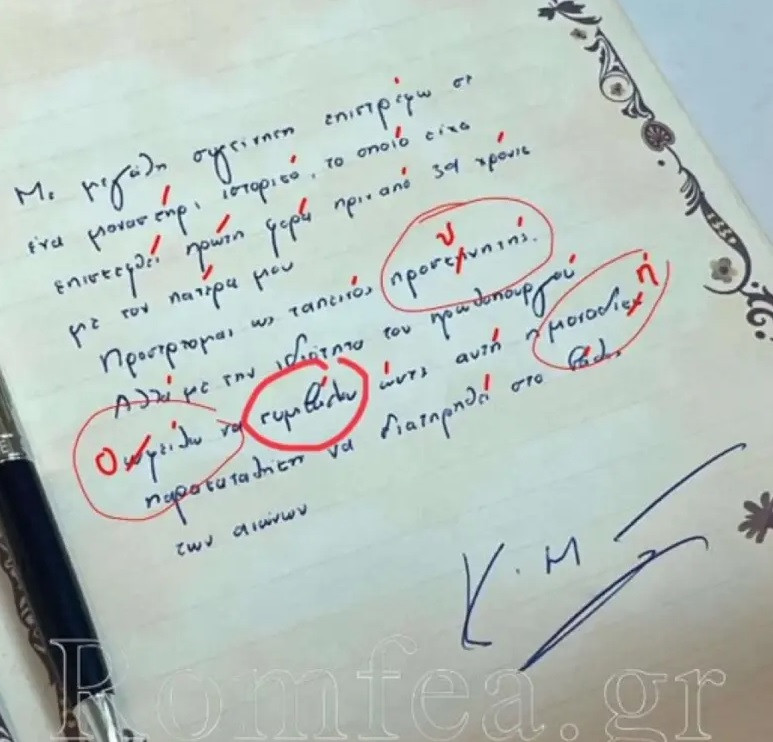 Με μεγάλη συγκίνηση επιστρέφω σε
ένα μοναστήρι ιστορικό, το οποίο είχα
επισκεφθεί πρώτη φορά πριν από 39 χρόνια
με τον πατέρα μου
Προσέρχομαι ως ταπεινός προσκηνητής.
υ
Αλλά με την ιδιότητα του πρωθυπουργού
ή
Ο ωφείλω να συμβάλω ώστε αυτή η μοναδικ
παρακαταθήκη να διατηρηθεί στο βάθος
των αιώνων
Κ. Μ
Romfea.gr